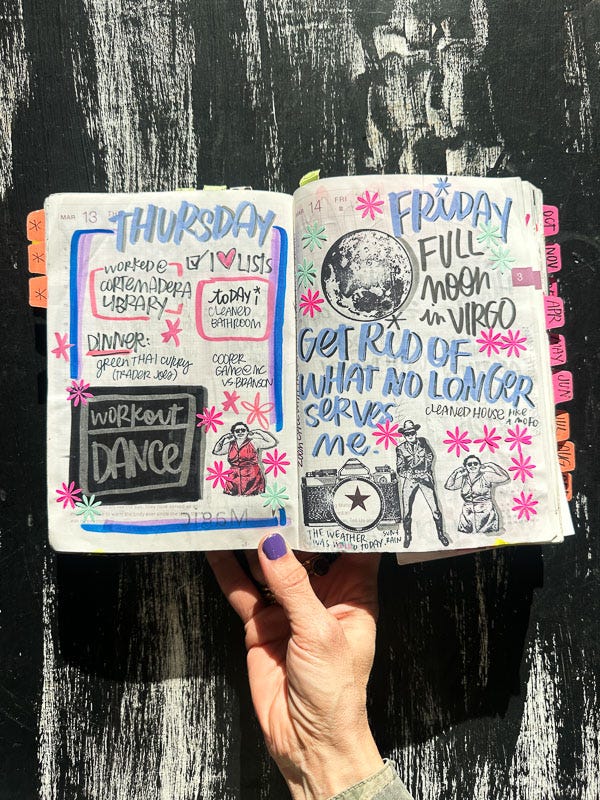 MAR 13 TH
THURSDAY
WORKED @
CORTE MADERA
LIBRARY
I ♥ LISTS
TODAY i
CLEANED
BATHROOM
DINNER:
green THAI CURRY
(TRADER JOES)
COOPER
GAME @ MC
VS. BRANSON
WORKOUT
DANCE
MAR 14 FRI
FRIDAY
FULL
MOON
in VIRGO
3
GET RID OF
WHAT NO LONGER
SERVES
ME.
CLEANED HOUSE LIKE
A MOFO
THE WEATHER
WAS WEIRD TODAY. SUN/
RAIN
OCT
NOV
APR
MAY
JUN
JUL
AUG